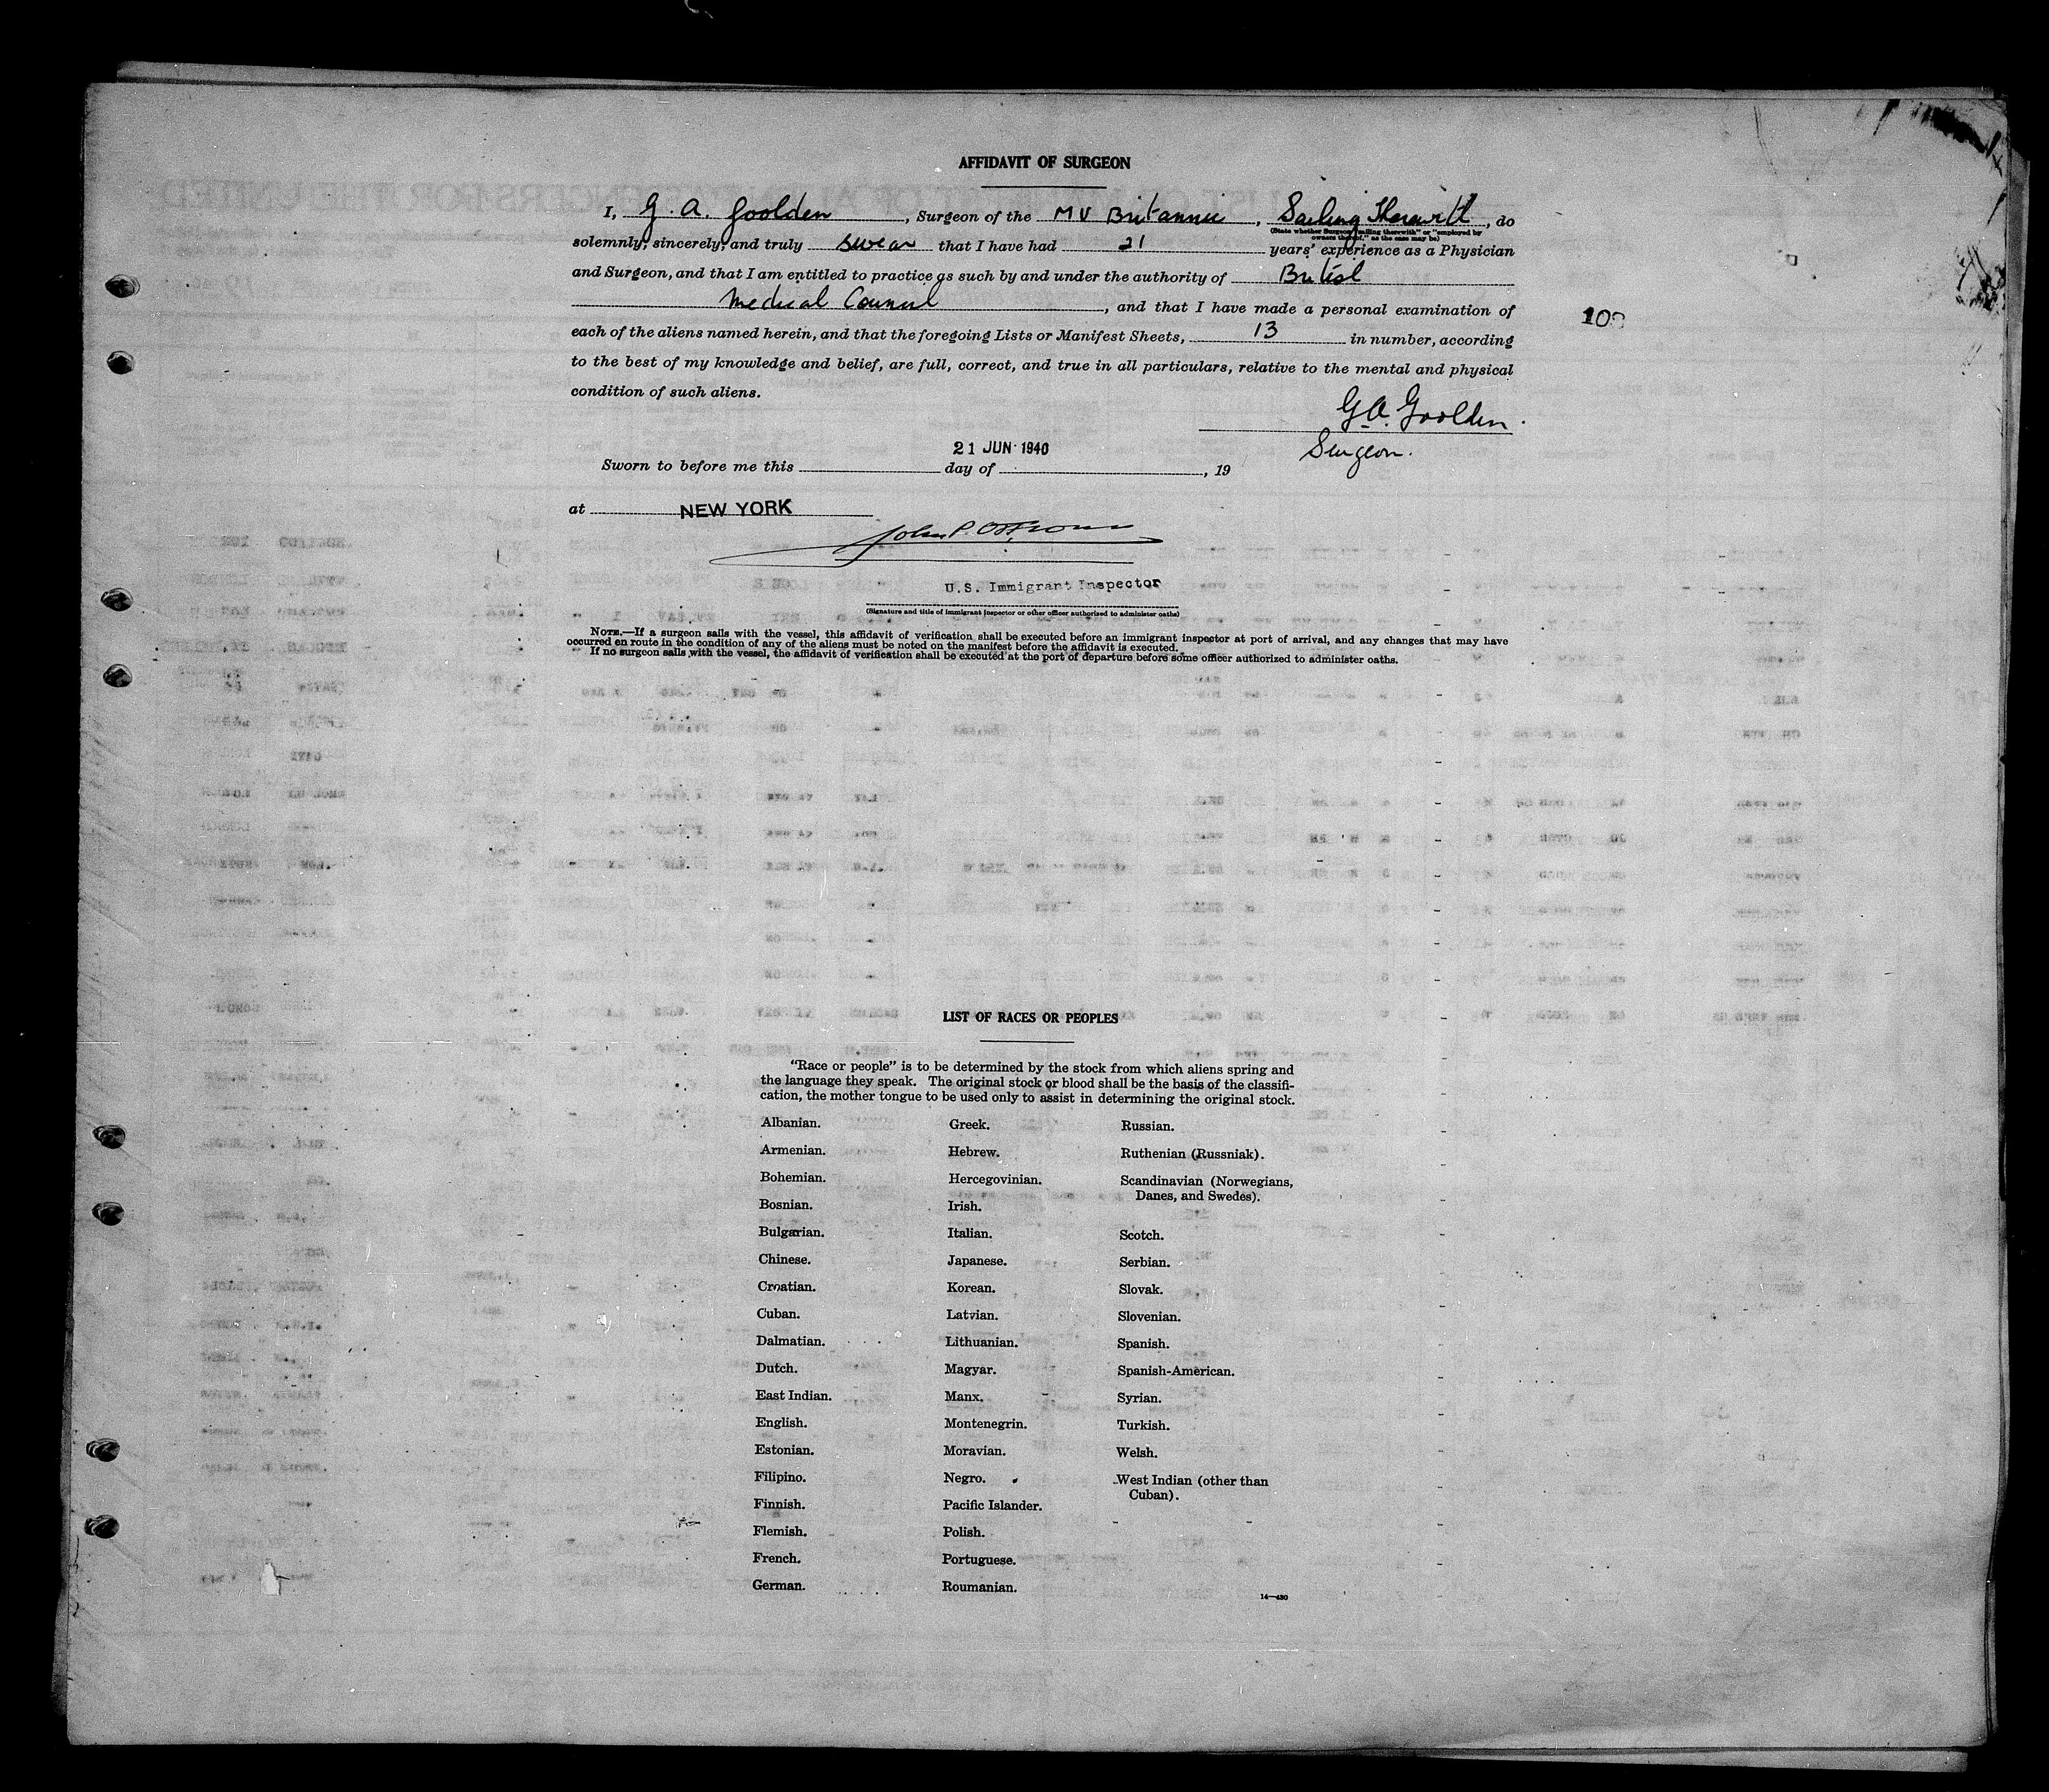 AFFIDAVIT OF SURGEON
I, G. A. Goolden, Surgeon of the MV Britannic, Sailing Therewith, do
(State whether Surgeon "sailing therewith" or "employed by
owners thereof," as the case may be)
solemnly, sincerely, and truly swear that I have had 21 years' experience as a Physician
and Surgeon, and that I am entitled to practice as such by and under the authority of British
Medical Council, and that I have made a personal examination of
each of the aliens named herein, and that the foregoing Lists or Manifest Sheets, 13 in number, according
to the best of my knowledge and belief, are full, correct, and true in all particulars, relative to the mental and physical
condition of such aliens.
G.A. Goolden.
Surgeon.
21 JUN 1940
Sworn to before me this day of , 19
at NEW YORK
John P.
U.S. Immigrant Inspector
(Signature and title of immigrant inspector or other officer authorized to administer oaths)
NOTE.—If a surgeon sails with the vessel, this affidavit of verification shall be executed before an immigrant inspector at port of arrival, and any changes that may have
occurred en route in the condition of any of the aliens must be noted on the manifest before the affidavit is executed.
If no surgeon sails with the vessel, the affidavit of verification shall be executed at the port of departure before some officer authorized to administer oaths.
LIST OF RACES OR PEOPLES
"Race or people" is to be determined by the stock from which aliens spring and
the language they speak. The original stock or blood shall be the basis of the classifi-
cation, the mother tongue to be used only to assist in determining the original stock.
Albanian.
Armenian.
Bohemian.
Bosnian.
Bulgarian.
Chinese.
Croatian.
Cuban.
Dalmatian.
Dutch.
East Indian.
English.
Estonian.
Filipino.
Finnish.
Flemish.
French.
German.
Greek.
Hebrew.
Hercegovinian.
Irish.
Italian.
Japanese.
Korean.
Latvian.
Lithuanian.
Magyar.
Manx.
Montenegrin.
Moravian.
Negro.
Pacific Islander.
Polish.
Portuguese.
Roumanian.
Russian.
Ruthenian (Russniak).
Scandinavian (Norwegians,
Danes, and Swedes).
Scotch.
Serbian.
Slovak.
Slovenian.
Spanish.
Spanish-American.
Syrian.
Turkish.
Welsh.
West Indian (other than
Cuban).
14—430